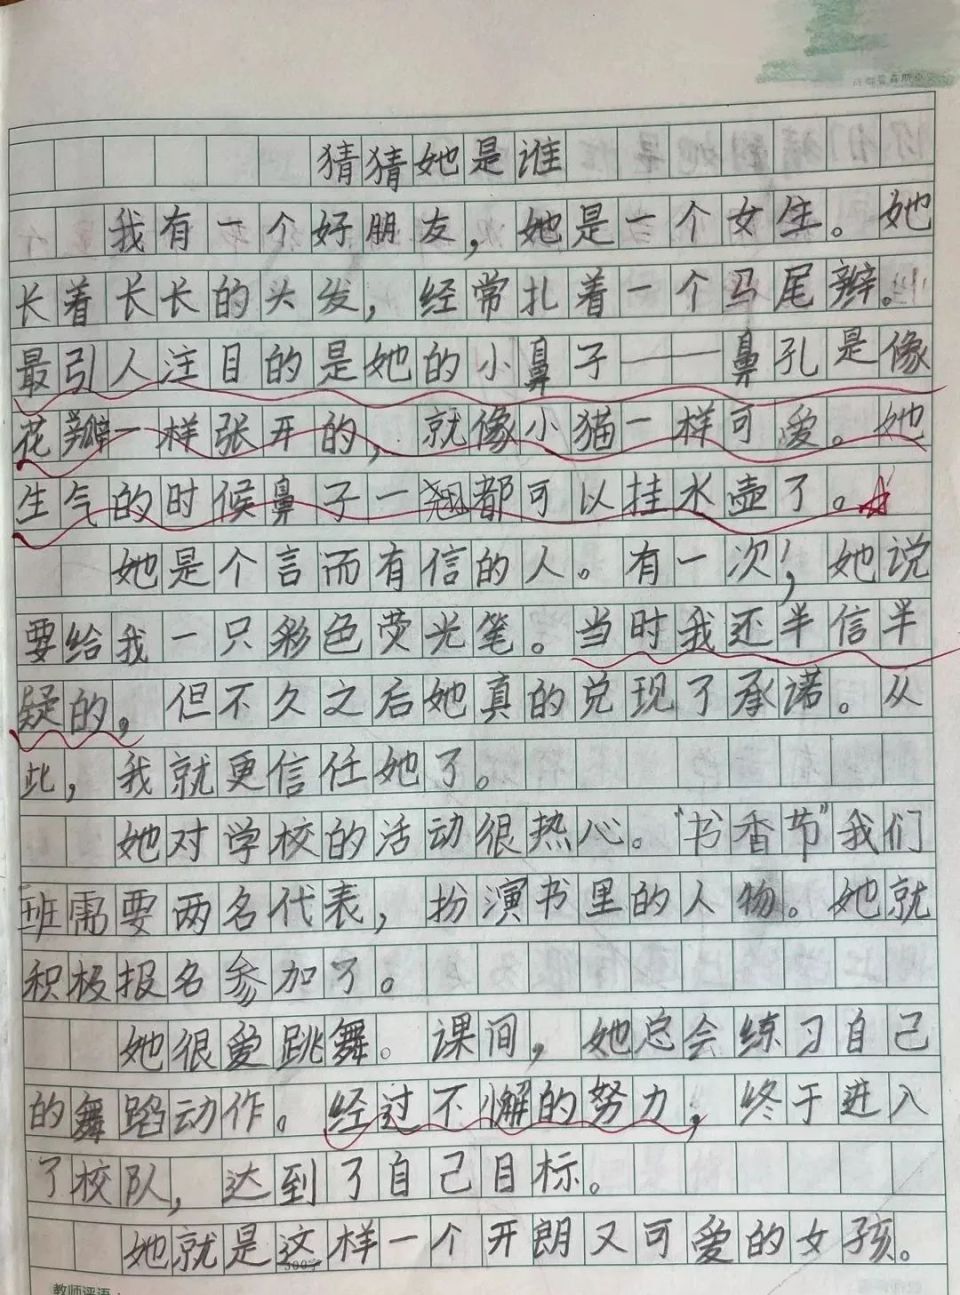 猜猜她是谁
我有一个好朋友，她是一个女生。她
长着长长的头发，经常扎着一个马尾辫。
最引人注目的是她的小鼻子——鼻孔是像
花瓣一样张开的，就像小猫一样可爱。她
生气的时候鼻子一翘都可以挂水壶了。
她是个言而有信的人。有一次，她说
要给我一只彩色荧光笔。当时我还半信半
疑的，但不久之后她真的兑现了承诺。从
此，我就更信任她了。
她对学校的活动很热心。“书香节”我们
班需要两名代表，扮演书里的人物。她就
积极报名参加了。
她很爱跳舞。课间，她总会练习自己
的舞蹈动作。经过不懈的努力，终于进入
了校队，达到了自己目标。
她就是这样一个开朗又可爱的女孩。
300字
教师评语：